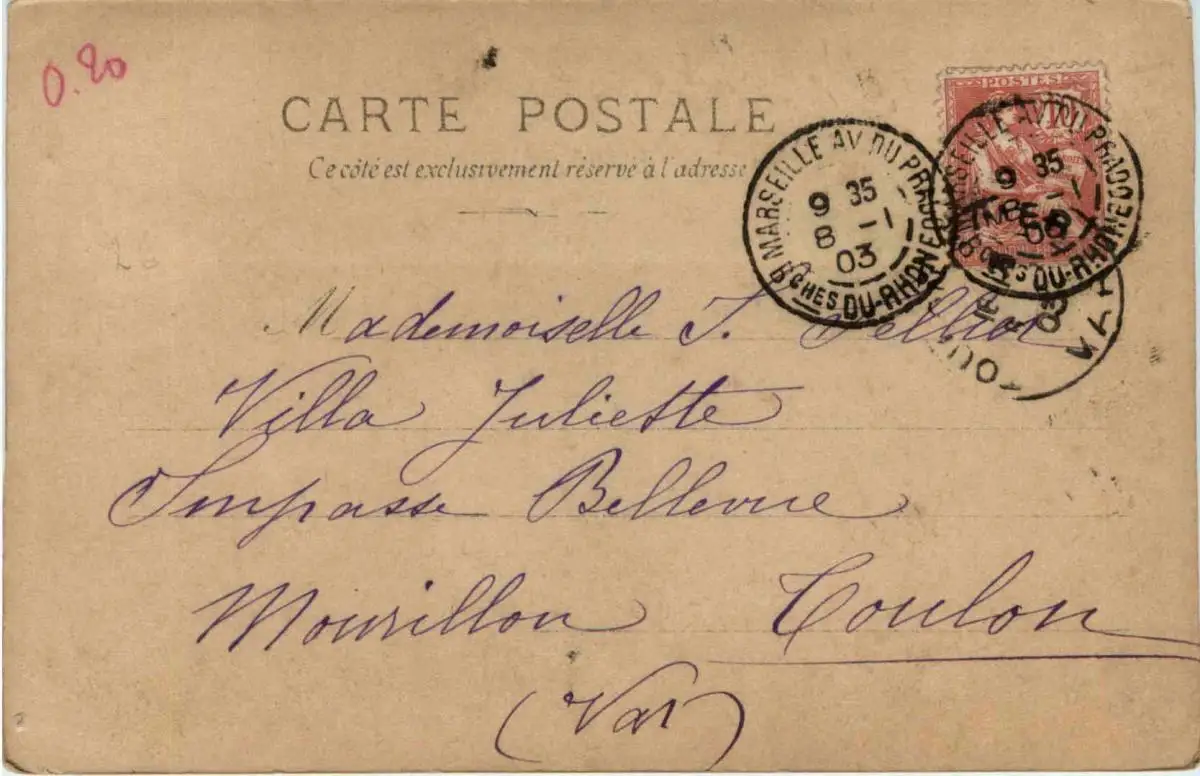 0.20
POSTES
CARTE POSTALE
Ce côté est exclusivement réservé à l'adresse
MARSEILLE AV. DU PRADO
9 35
8 -1
03
BCHES DU-RHONE
MARSEILLE AV. DU PRADO
9 35
8 -1
03
BCHES DU-RHONE
VAR
03
26
Mademoiselle J. Pellior
Villa Juliette
Impasse Bellevue
Mourillon Toulon
(Var)